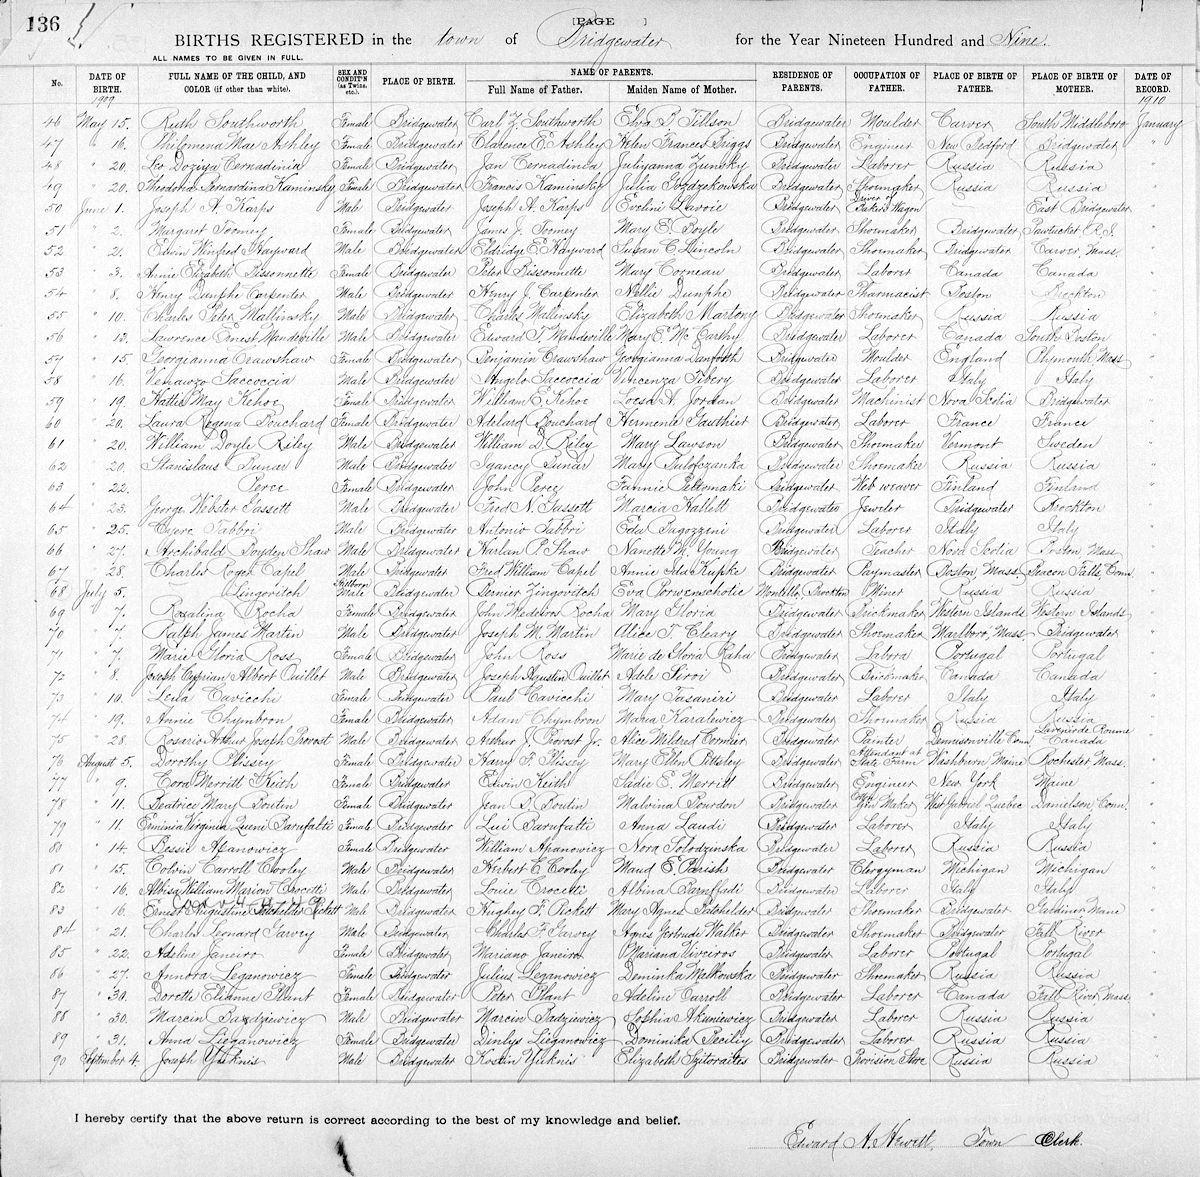 136
[PAGE ]
BIRTHS REGISTERED in the town of Bridgewater for the Year Nineteen Hundred and Nine.
ALL NAMES TO BE GIVEN IN FULL.
No. DATE OF BIRTH. FULL NAME OF THE CHILD, AND COLOR (if other than white). SEX AND CONDIT'N (as Twins, etc.). PLACE OF BIRTH. NAME OF PARENTS. Full Name of Father. Maiden Name of Mother. RESIDENCE OF PARENTS. OCCUPATION OF FATHER. PLACE OF BIRTH OF FATHER. PLACE OF BIRTH OF MOTHER. DATE OF RECORD.
1909 1910
46 May 15. Ruth Southworth Female Bridgewater Carl Z. Southworth Elva T. Tillson Bridgewater Moulder Carver South Middleboro January
47 " 16. Philomena Mae Ashley Female Bridgewater Clarence E. Ashley Helen Frances Briggs Bridgewater Engineer New Bedford Bridgewater "
48 " 20. Cernadinia Female Bridgewater Jan Cernadinia Julyanna Bridgewater Laborer Russia Russia "
49 " 20. Theodora Bernardina Kaminsky Female Bridgewater Francis Kaminsky Julia Bridgewater Shoemaker Russia Russia "
50 June 1. Joseph A. Karps Male Bridgewater Joseph A. Karps Eveline Lavoie Bridgewater Driver of Bakers Wagon East Bridgewater "
51 " 2. Margaret Toomey Female Bridgewater James J. Toomey Mary E. Boyle Bridgewater Shoemaker Bridgewater Pawtucket R.I. "
52 " 2. Edwin Winfred Hayward Male Bridgewater Eldridge E. Hayward Susan C. Lincoln Bridgewater Shoemaker Bridgewater Carver, Mass. "
53 " 3. Annie Elizabeth Bissonnette Female Bridgewater Peter Bissonnette Mary Corneau Bridgewater Laborer Canada Canada "
54 " 8. Henry Dunphe Carpenter Male Bridgewater Henry J. Carpenter Nellie Dunphe Bridgewater Pharmacist Boston Brockton "
55 " 10. Charles Peter Mallinsky Male Bridgewater Charles Mallinsky Elizabeth Martony Bridgewater Shoemaker Russia Russia "
56 " 13. Lawrence Ernest Mandeville Male Bridgewater Edward T. Mandeville Mary E. McCarthy Bridgewater Laborer Canada South Boston "
57 " 15. Georgianna Crawshaw Female Bridgewater Benjamin Crawshaw Georgianna Danforth Bridgewater Moulder England Plymouth, Mass "
58 " 16. Saccoccia Male Bridgewater Angelo Saccoccia Vincenza Tibery Bridgewater Laborer Italy Italy "
59 " 19. Hattie May Kehoe Female Bridgewater William E. Kehoe Loesa A. Jordan Bridgewater Machinist Nova Scotia Bridgewater "
60 " 20. Laura Regena Bouchard Female Bridgewater Adelard Bouchard Hermenle Gauthier Bridgewater Laborer France France "
61 " 20. William Doyle Riley Male Bridgewater William D. Riley Mary Lawson Bridgewater Shoemaker Vermont Sweden "
62 " 20. Stanislaus Bunar Male Bridgewater Igancy Bunar Mary Bulofczanka Bridgewater Shoemaker Russia Russia "
63 " 22. Perce Female Bridgewater John Percy Fannie Peltomaki Bridgewater Web weaver Finland Finland "
64 " 23. George Webster Fassett Male Bridgewater Fred N. Fassett Marcia Hallett Bridgewater Jeweler Bridgewater Brockton "
65 " 25. Fabbri Male Bridgewater Antonio Fabbri Eda Bagozzini Bridgewater Laborer Italy Italy "
66 " 27. Archibald Boyden Shaw Male Bridgewater Harlan P. Shaw Nanette M. Young Bridgewater Teacher Nova Scotia Boston, Mass "
67 " 28. Charles Roger Capel Male Bridgewater Fred William Capel Annie Ida Kupke Bridgewater Paymaster Boston, Mass Beacon Falls, Conn "
68 July 5. Lingovitch Stillborn Male Bridgewater Bernier Zingovitch Eva Porwenscholie Montello, Brockton Miner Russia Russia "
69 " 7. Rosalina Rocha Female Bridgewater John Medeiros Rocha Mary Gloria Bridgewater Brickmaker Western Islands Western Islands "
70 " 7. Ralph James Martin Male Bridgewater Joseph M. Martin Alice T. Cleary Bridgewater Shoemaker Marlboro, Mass Bridgewater "
71 " 7. Marie Gloria Ross Female Bridgewater John Ross Marie de Gloria Raha Bridgewater Labora Portugal Portugal "
72 " 8. Joseph Cyprian Albert Ouillet Male Bridgewater Joseph Agustin Ouillet Adele Siroi Bridgewater Brickmaker Canada Canada "
73 " 10. Leila Cavicchi Female Bridgewater Paul Cavicchi Mary Tasanini Bridgewater Laborer Italy Italy "
74 " 19. Annie Chymbron Female Bridgewater Adam Chymbron Maria Karalewicz Bridgewater Shoemaker Russia Russia "
75 " 28. Rosario Arthur Joseph Provost Male Bridgewater Arthur J. Provost Jr. Alice Mildred Cormier Bridgewater Painter Conn Canada "
76 August 5. Dorothy Plissey Female Bridgewater Harry F. Plissey Mary Ellen Pittsley Bridgewater Attendant at State Farm Washburn Maine Rochester Mass. "
77 " 9. Cora Merritt Keith Female Bridgewater Edwin Keith Sadie E. Merritt Bridgewater Engineer New York Maine "
78 " 11. Beatrice Mary Boutin Female Bridgewater Jean B. Boutin Malvina Bourdon Bridgewater Gin Maker Quebec Danielson, Conn. "
79 " 11. Erminia Virginia Queni Barufatti Female Bridgewater Lui Barufatti Anna Laudi Bridgewater Laborer Italy Italy "
80 " 14. Bessie Apanowicz Female Bridgewater William Apanowicz Nora Solodzinska Bridgewater Laborer Russia Russia "
81 " 15. Colvin Carroll Cooley Male Bridgewater Herbert E. Cooley Maud E. Parish Bridgewater Clergyman Michigan Michigan "
82 " 16. Albisa William Marion Crocetti Male Bridgewater Louie Crocetti Albina Baruffadi Bridgewater Laborer Italy Italy "
83 " 16. Ernest Augustine Batchelder Pickett Male Bridgewater Hughey F. Pickett Mary Agnes Batchelder Bridgewater Shoemaker Bridgewater Gardiner Maine "
84 " 21. Charles Leonard Garvey Male Bridgewater Charles F. Garvey Agnes Gertrude Walker Bridgewater Shoemaker Bridgewater Fall River "
85 " 22. Adeline Janeiro Female Bridgewater Mariano Janeiro Mariana Viveiros Bridgewater Laborer Portugal Portugal "
86 " 27. Annora Leganowicz Female Bridgewater Julius Leganowicz Deminka Malkowska Bridgewater Shoemaker Russia Russia "
87 " 30. Dorette Elianne Plant Female Bridgewater Peter Plant Adeline Carroll Bridgewater Laborer Canada Fall River, Mass "
88 " 30. Marcin Badziewicz Male Bridgewater Marcin Badziewicz Sophia Akuniewicz Bridgewater Laborer Russia Russia "
89 " 31. Anna Lieganowicz Female Bridgewater Dinlys Lieganowicz Dominika Peciliy Bridgewater Laborer Russia Russia "
90 September 4. Joseph Yuknis Male Bridgewater Kostin Yuknis Elizabeth Szitoraites Bridgewater Provision Store Russia Russia "
I hereby certify that the above return is correct according to the best of my knowledge and belief.
Edward A. Hewett, Town Clerk.